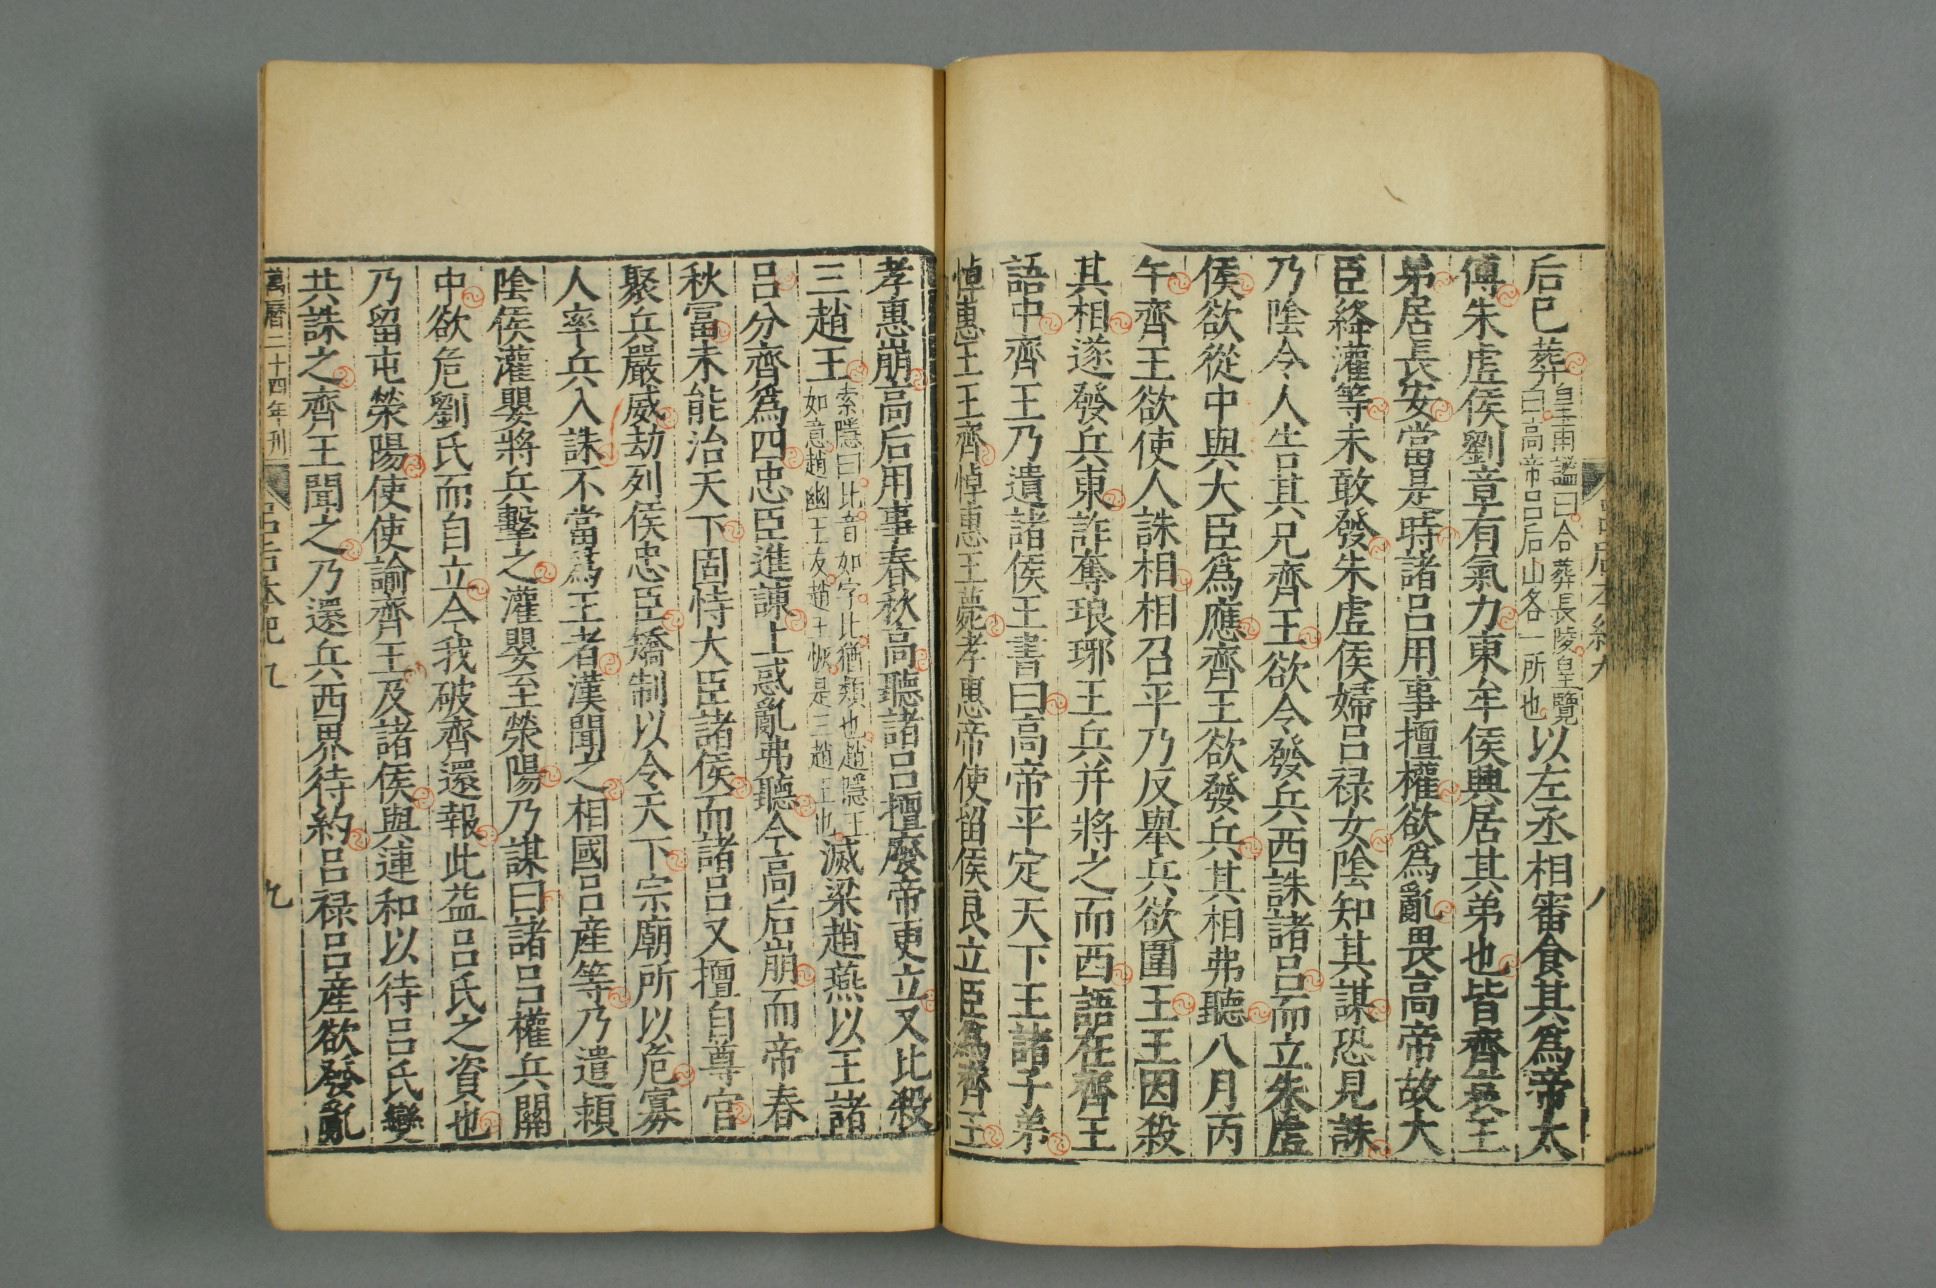 后已葬皇甫謐曰合葬長陵皇覽曰高帝呂后山各一所也以左丞相審食其爲帝太
傅朱虛侯劉章有氣力東牟侯興居其弟也皆齊哀王
弟居長安當是時諸呂用事擅權欲爲亂畏高帝故大
臣絳灌等未敢發朱虛侯婦呂禄女陰知其謀恐見誅
乃陰令人告其兄齊王欲令發兵西誅諸呂而立朱虛
侯欲從中與大臣爲應齊王欲發兵其相弗聽八月丙
午齊王欲使人誅相相召平乃反舉兵欲圍王王因殺
其相遂發兵東詐奪琅琊王兵并將之而西語在齊王
語中齊王乃遺諸侯王書曰高帝平定天下王諸子弟
悼惠王王齊悼惠王薨孝惠帝使留侯良立臣爲齊王
孝惠崩高后用事春秋高聽諸呂擅廢帝更立又比殺
三趙王索隱曰比音如字比猶頻也趙隱王如意趙幽王友趙王恢是三趙王也滅梁趙燕以王諸
呂分齊爲四忠臣進諫上惑亂弗聽今高后崩而帝春
秋富未能治天下固恃大臣諸侯而諸呂又擅自尊官
聚兵嚴威劫列侯忠臣矯制以令天下宗廟所以危寡
人率兵入誅不當爲王者漢聞之相國呂産等乃遣潁
陰侯灌嬰將兵擊之灌嬰至滎陽乃謀曰諸呂權兵關
中欲危劉氏而自立今我破齊還報此益呂氏之資也
乃留屯滎陽使使諭齊王及諸侯與連和以待呂氏變
共誅之齊王聞之乃還兵西界待約呂禄呂産欲發亂
萬曆二十四年刊 呂后本紀九 九